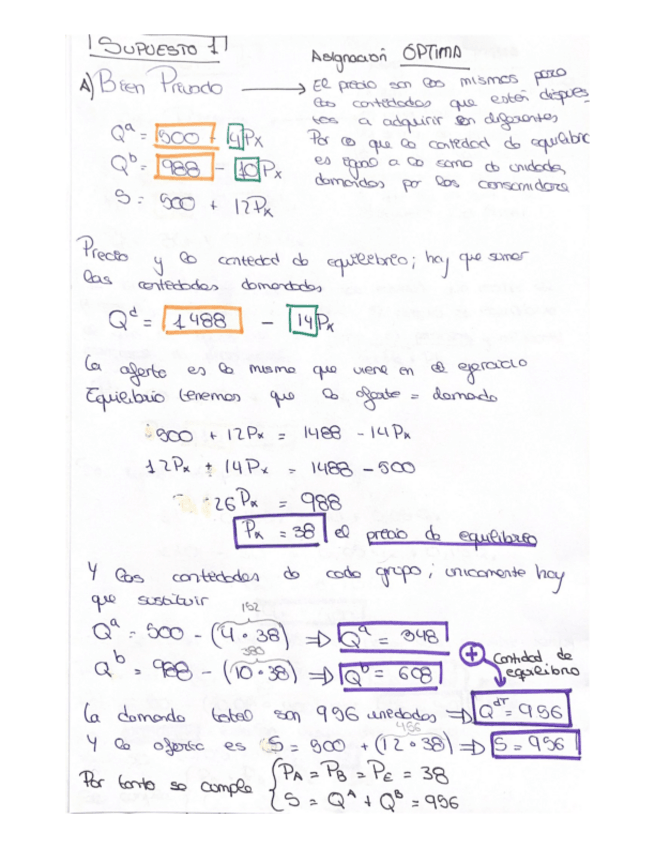 SUPUESTO 1
Asignación ÓPTIMA
A) Bien Privado → El precio son los mismos para
las cantidades que estén dispues-
tos a adquirir son diferentes
Por lo que la cantidad de equilibrio
es igual a la suma de unidades
demandas por los consumidores
Qᵃ = 500 + 4Px
Qᵇ = 988 - 10Px
S = 500 + 12Px
Precio y la cantidad de equilibrio; hay que sumar
las cantidades demandadas
Qᵈ = 1488 - 14Px
La oferta es la misma que viene en el ejercicio
Equilibrio tenemos que la oferta = demanda
500 + 12Px = 1488 - 14Px
12Px + 14Px = 1488 - 500
26Px = 988
Px = 38 el precio de equilibrio
Y las cantidades de cada grupo; unicamente hay
que sustituir
152
Qᵃ = 500 - (4·38) ⇒ Qᵃ = 348
380
Qᵇ = 988 - (10·38) ⇒ Qᵇ = 608
+ Cantidad de
equilibrio
La demanda total son 956 unidades ⇒ Qᵈᵀ = 956
456
Y la oferta es S = 500 + (12·38) ⇒ S = 956
Por tanto se cumple { PA = PB = PE = 38
S = Qᴬ + Qᴮ = 956